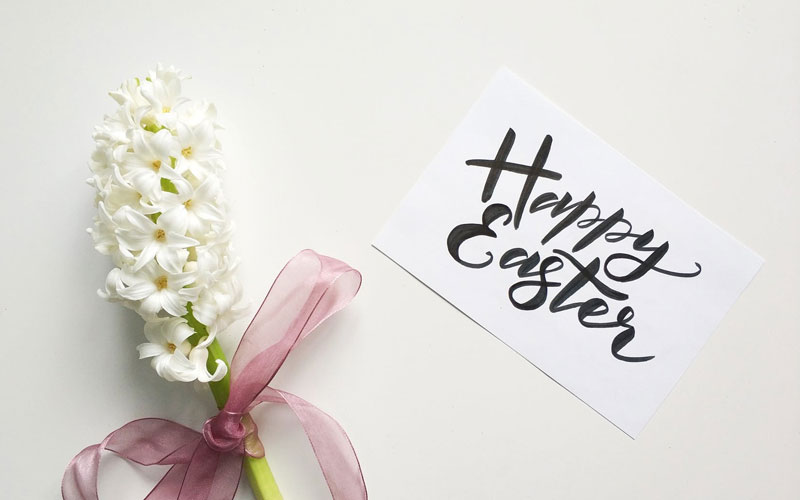 Happy
Easter